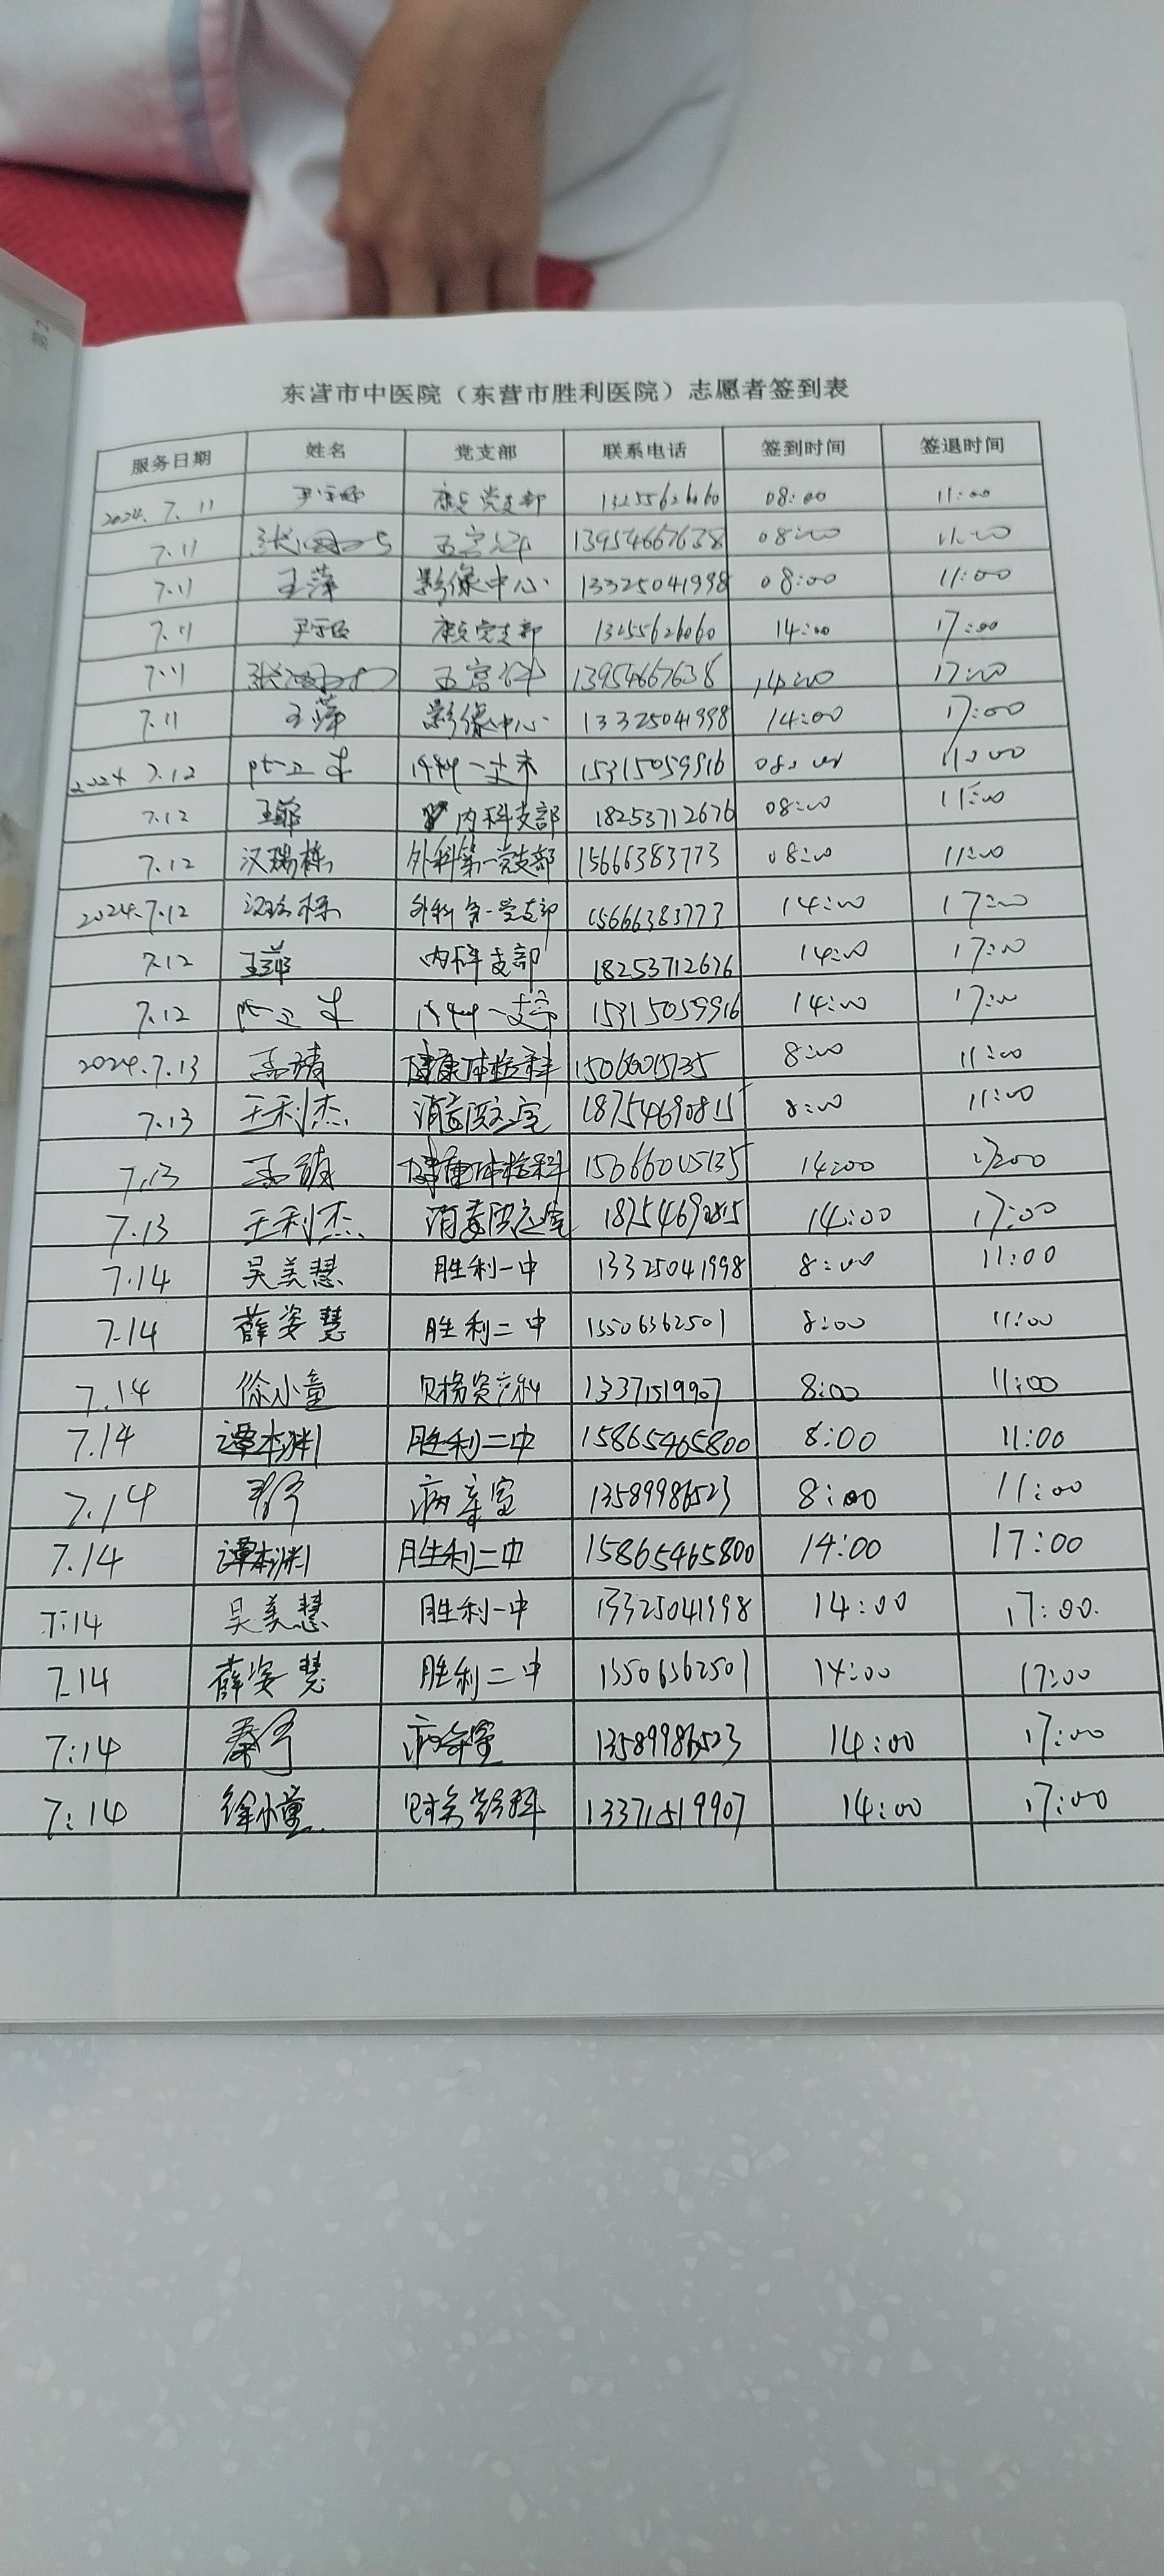 东营市中医院（东营市胜利医院）志愿者签到表
服务日期 姓名 党支部 联系电话 签到时间 签退时间
2024.7.11 党支部 13255626060 08:00 11:00
7.11 五官科 13954667638 08:00 11:00
7.11 王萍 影像中心 13325041998 08:00 11:00
7.11 党支部 13255626060 14:00 17:00
7.11 五官科 13954667638 14:00 17:00
7.11 王萍 影像中心 13325041998 14:00 17:00
2024 7.12 15315059916 08:00 11:00
7.12 内科支部 18253712676 08:00 11:00
7.12 汉瑞栋 外科第一党支部 15666383773 08:00 11:00
2024.7.12 汉瑞栋 外科第一党支部 15666383773 14:00 17:00
7.12 内科支部 18253712676 14:00 17:00
7.12 一支部 15315059916 14:00 17:00
2024.7.13 健康体检科 15066005135 8:00 11:00
7.13 王利杰 18754690815 8:00 11:00
7.13 健康体检科 15066005135 14:00 17:00
7.13 王利杰 18754690815 14:00 17:00
7.14 吴美慧 胜利一中 13325041998 8:00 11:00
7.14 薛姿慧 胜利二中 15506362501 8:00 11:00
7.14 徐小童 13371519907 8:00 11:00
7.14 谭本渊 胜利二中 15865465800 8:00 11:00
7.14 病案室 13589986523 8:00 11:00
7.14 谭本渊 胜利二中 15865465800 14:00 17:00
7.14 吴美慧 胜利一中 13325041998 14:00 17:00
7.14 薛姿慧 胜利二中 15506362501 14:00 17:00
7:14 病案室 13589986523 14:00 17:00
7:14 徐小童 13371519907 14:00 17:00